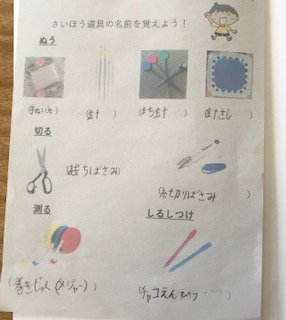 さいほう道具の名前を覚えよう！
ぬう
(手ぬい糸) (針) (まち針) (針さし)
切る
(裁ちばさみ)
(糸切りばさみ)
測る
しるしつけ
(巻きじゃく(メジャー))
(チャコえんぴつ)